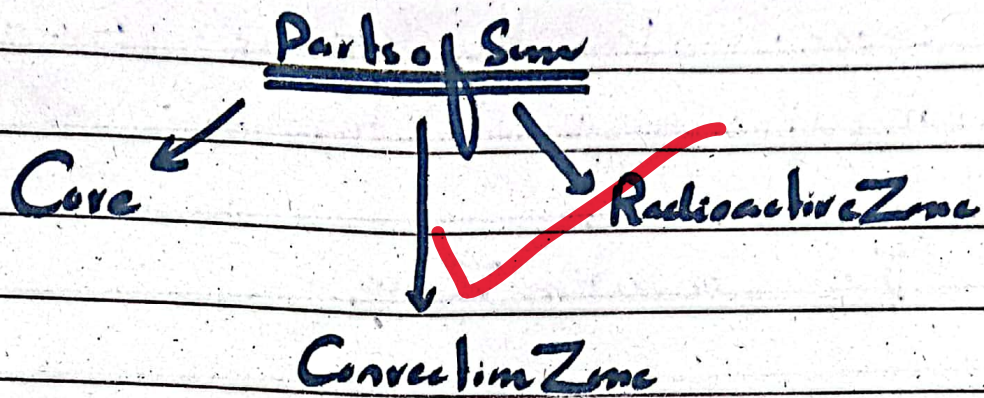 Parts of Sun
Core
Radioactive Zone
Convection Zone